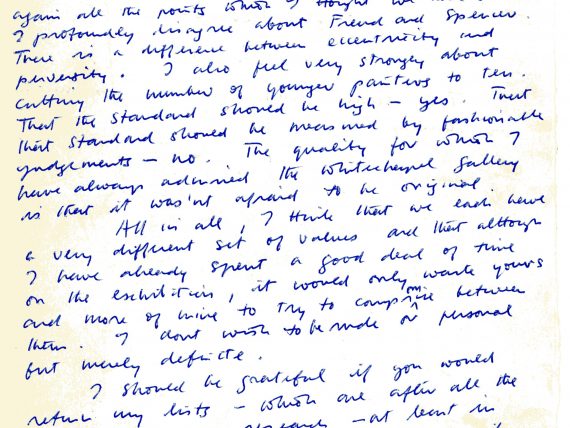 again all the points which I thought we had
I profoundly disagree about Freud and Spencer.
There is a difference between eccentricity and
perversity. I also feel very strongly about
cutting the number of younger painters to ten.
That the standard should be high – yes. That
that standard should be measured by fashionable
judgements – no. The quality for which I
have always admired the Whitechapel Gallery
is that it was'nt afraid to be original.
All in all, I think that we each have
a very different set of values and that although
I have already spent a good deal of time
on the exhibition, it would only waste yours
and more of mine to try to compromise between
them. I dont wish to be rude or personal
but merely definite.
I should be grateful if you would
return my lists – which are after all the
research – at least in